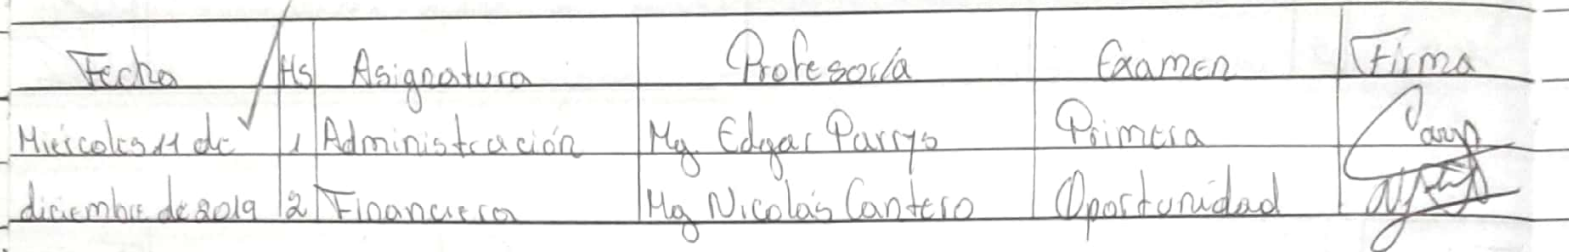 Fecha Hs Asignatura Profesor/a Examen Firma
Miércoles 11 de 1 Administración Mg. Edgar Parrys Primera
diciembre de 2019 2 Financiera Mg Nicolás Cantero Oportunidad